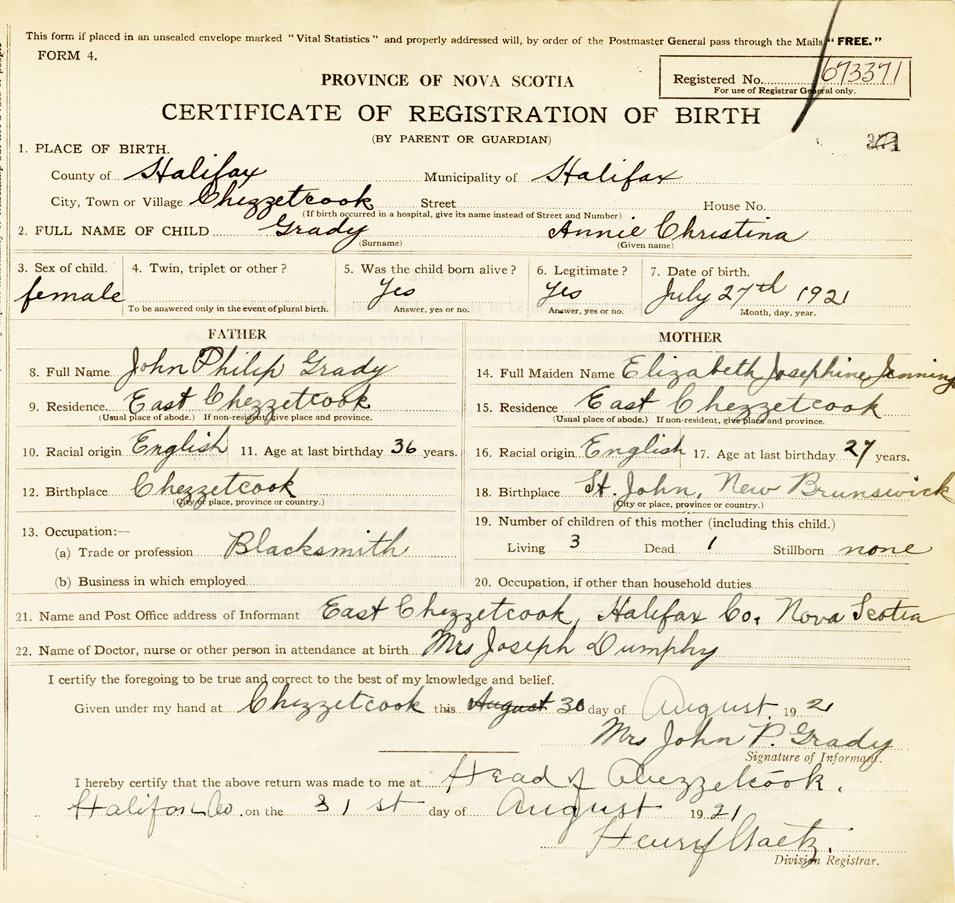 This form if placed in an unsealed envelope marked "Vital Statistics" and properly addressed will, by order of the Postmaster General pass through the Mails "FREE."
FORM 4.
Registered No. 673371
For use of Registrar General only.
PROVINCE OF NOVA SCOTIA
CERTIFICATE OF REGISTRATION OF BIRTH
(BY PARENT OR GUARDIAN)
1. PLACE OF BIRTH.
County of Halifax Municipality of Halifax
City, Town or Village Chezzetcook Street House No.
(If birth occurred in a hospital, give its name instead of Street and Number)
2. FULL NAME OF CHILD Grady Annie Christina
(Surname) (Given name)
3. Sex of child. 4. Twin, triplet or other? 5. Was the child born alive? 6. Legitimate? 7. Date of birth.
female Yes Yes July 27th 1921
To be answered only in the event of plural birth. Answer, yes or no. Answer, yes or no. Month, day, year.
FATHER
8. Full Name John Philip Grady
9. Residence. East Chezzetcook
(Usual place of abode.) If non-resident, give place and province.
10. Racial origin English 11. Age at last birthday 36 years.
12. Birthplace Chezzetcook
(City or place, province or country.)
13. Occupation:—
(a) Trade or profession Blacksmith
(b) Business in which employed
MOTHER
14. Full Maiden Name Elizabeth Josephine Jenning
15. Residence East Chezzetcook
(Usual place of abode.) If non-resident, give place and province.
16. Racial origin English 17. Age at last birthday 27 years.
18. Birthplace St. John, New Brunswick
(City or place, province or country.)
19. Number of children of this mother (including this child.)
Living 3 Dead 1 Stillborn none
20. Occupation, if other than household duties
21. Name and Post Office address of Informant East Chezzetcook, Halifax Co. Nova Scotia
22. Name of Doctor, nurse or other person in attendance at birth Mrs Joseph Dumphy
I certify the foregoing to be true and correct to the best of my knowledge and belief.
Given under my hand at Chezzetcook this August 30 day of August 1921
Mrs John P. Grady
Signature of Informant.
I hereby certify that the above return was made to me at Head of Chezzetcook.
Halifax Co. on the 31st day of August 1921
Henry Gaetz.
Division Registrar.